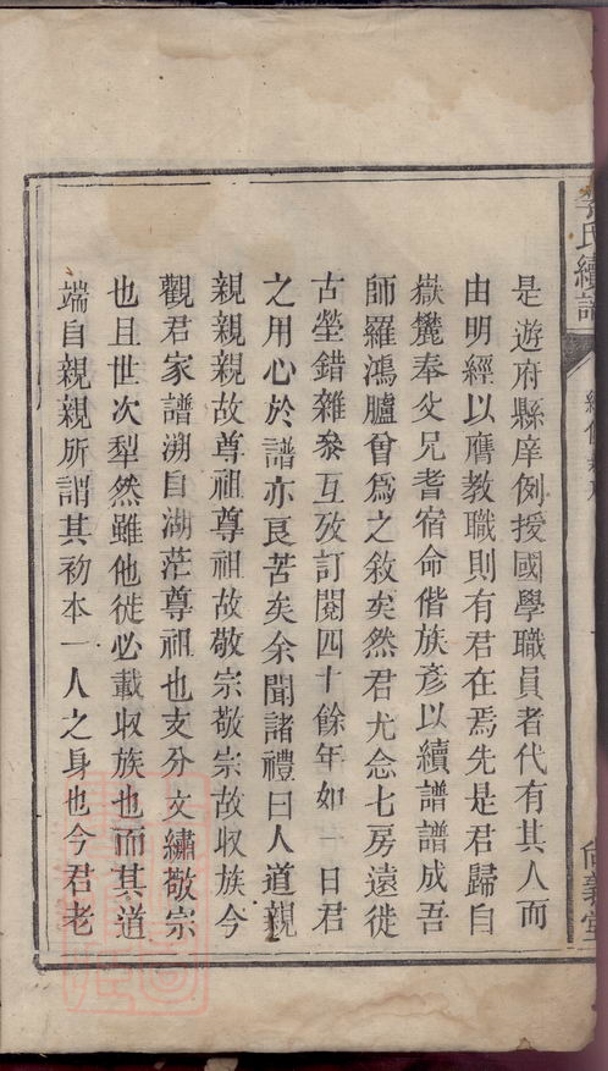 氏續譜
是遊府縣庠例授國學職員者代有其人而
由明經以膺教職則有君在焉先是君歸自
嶽麓奉父兄耆宿命偕族彥以續譜譜成吾
師羅鴻臚曾爲之敘矣然君尤念七房遠徙
古塋錯雜叅互攷訂閱四十餘年如一日君
之用心於譜亦良苦矣余聞諸禮曰人道親
親親親故尊祖尊祖故敬宗敬宗故收族今
觀君家譜溯自湖茫尊祖也支分文繡敬宗
也且世次犁然雖他徙必載收族也而其道
端自親親所謂其初本一人之身也今君老